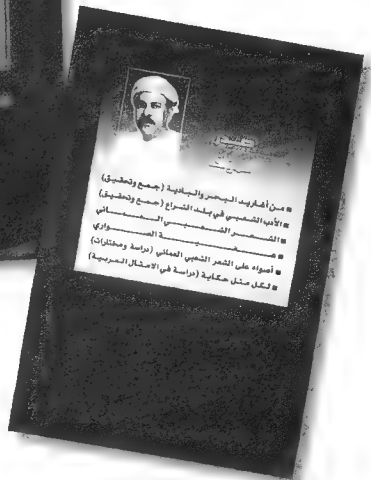 ■ من أغاريد البحر والبادية (جمع وتحقيق)
■ الأدب الشعبي في بلد الشراع (جمع وتحقيق)
■ الشعر الشعبي العماني
■ الصواري
■ أضواء على الشعر الشعبي العماني (دراسة ومختارات)
■ لكل مثل حكاية (دراسة في الأمثال العربية)